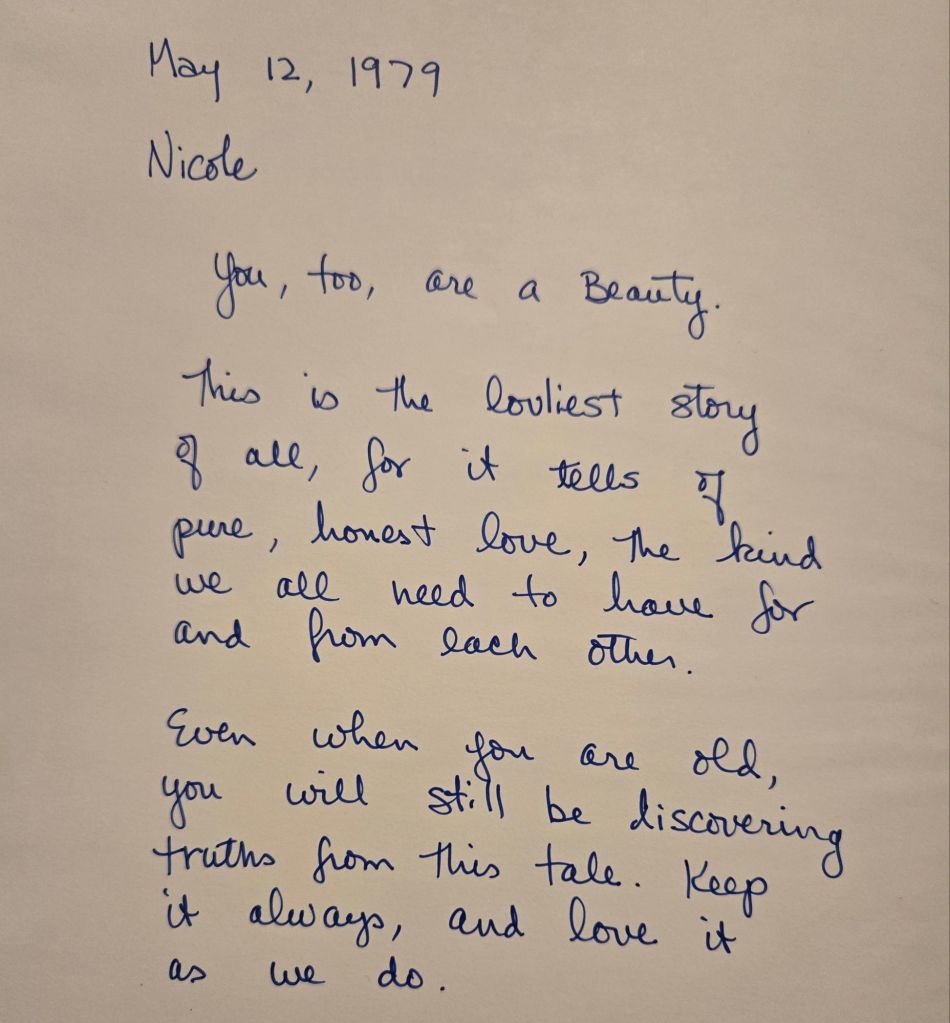 May 12, 1979
Nicole
You, too, are a Beauty.
This is the lovliest story
of all, for it tells of
pure, honest love, the kind
we all need to have for
and from each other.
Even when you are old,
you will still be discovering
truths from this tale. Keep
it always, and love it
as we do.